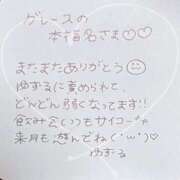 グレースの
本指名さま♡♡
またまたありがとう☺
ゆずるに責められて、
どんどん弱くなってます!!
飲み会いつもサイコー✨
来月も遊んでね(˙ω˙)♡
ゆずる